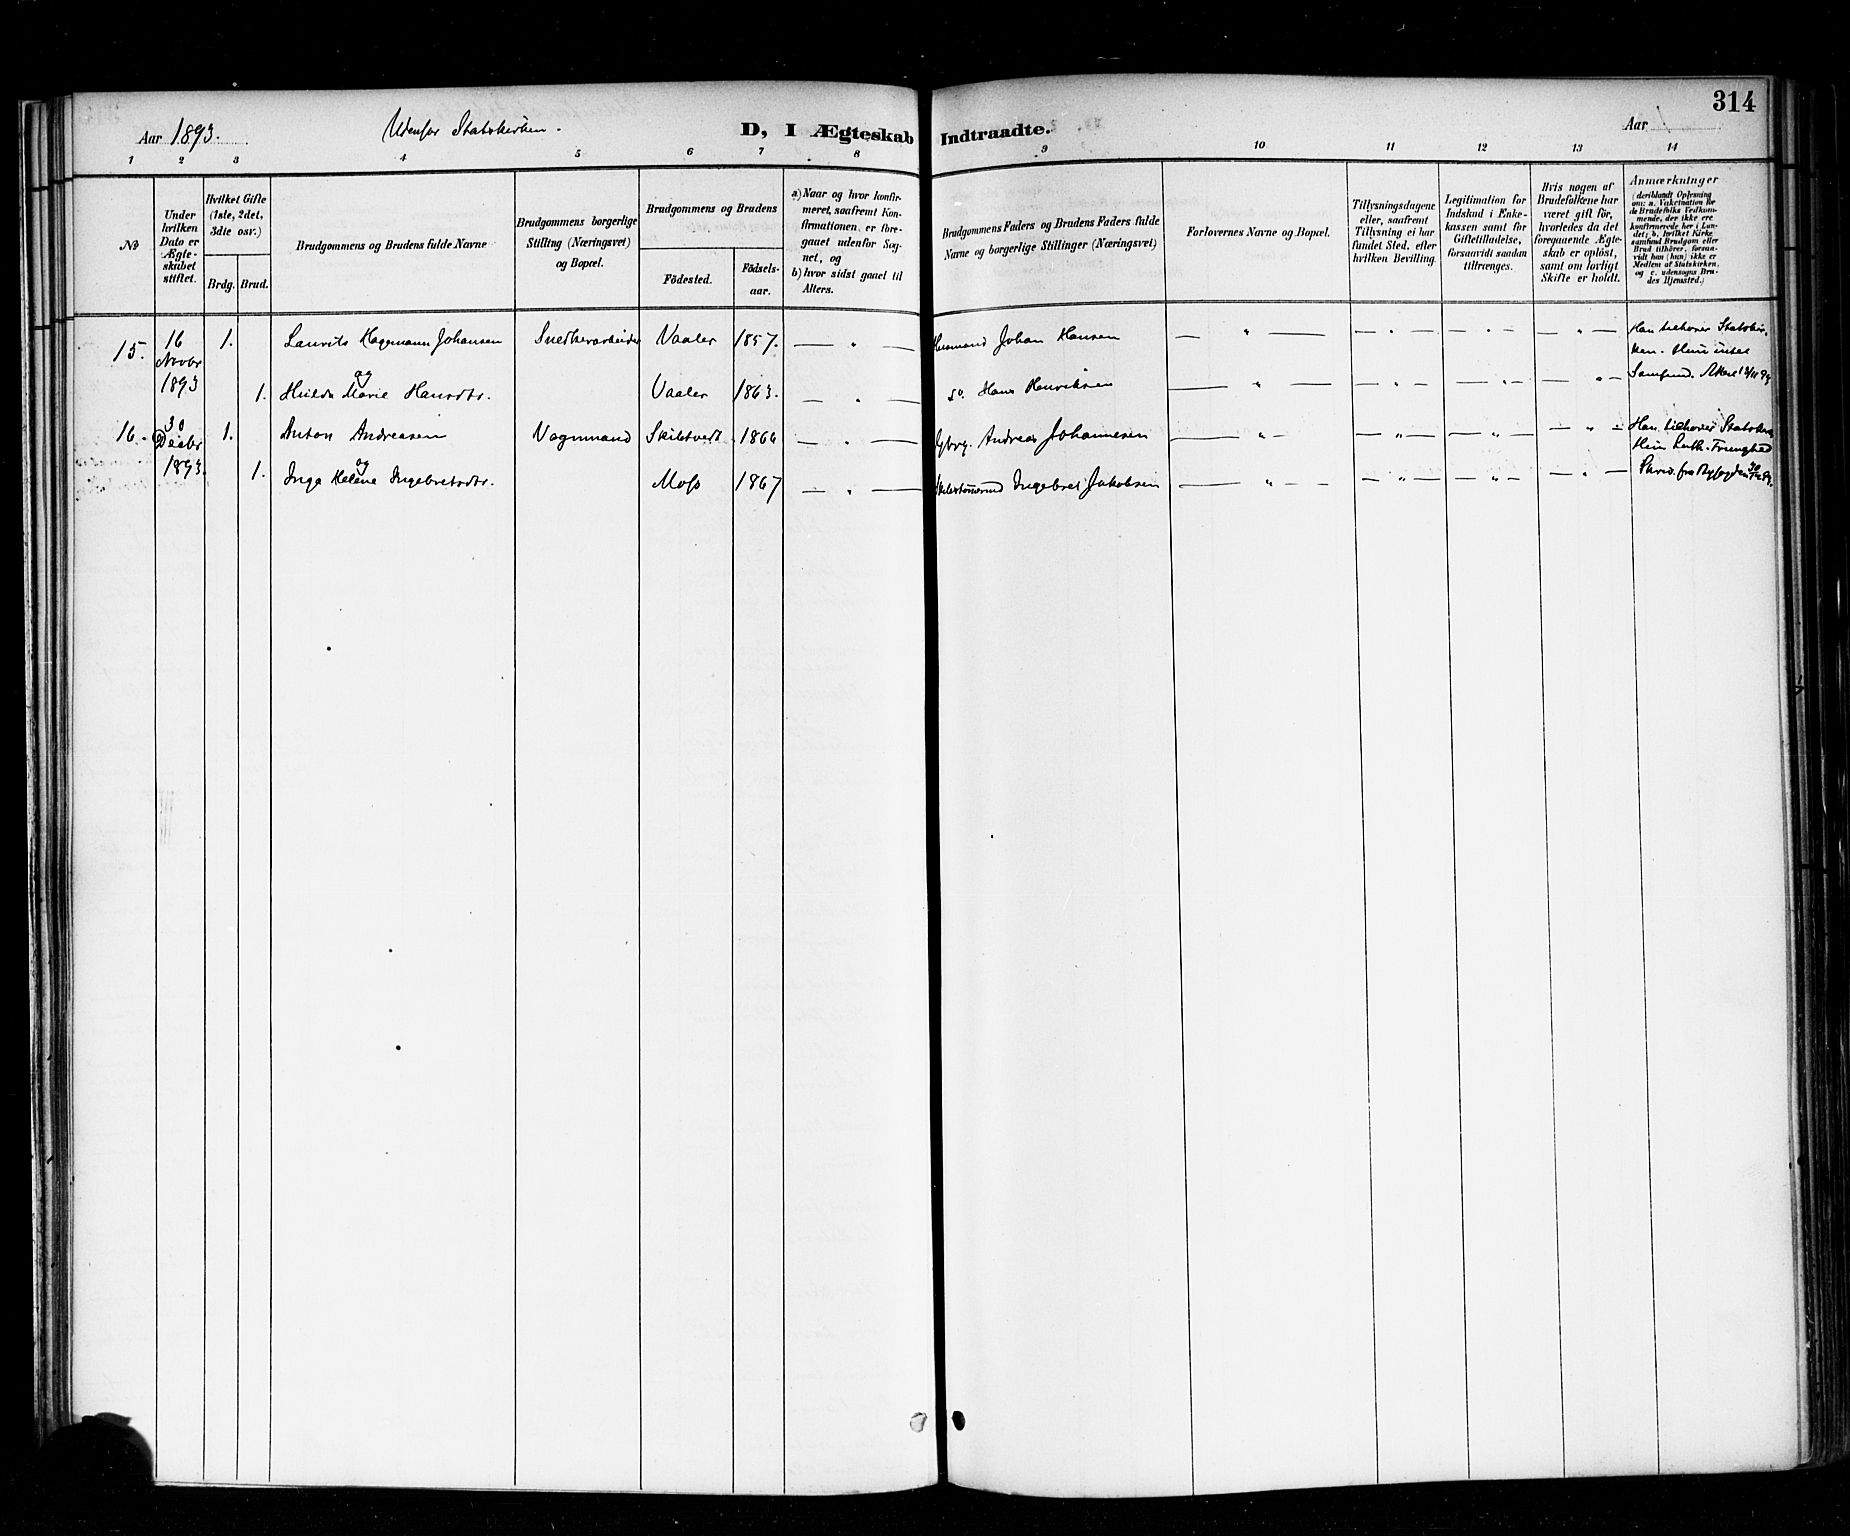 314
Aar 1893. Udenfor Statskirken. D, I Ægteskab Indtraadte. Aar
1 2 3 4 5 6 7 8 9 10 11 12 13 14
No
Under hvilken Dato er Ægte-skabet stiftet.
Hvilket Gifte (1ste, 2det, 3dte osv.)
Brdg. Brud.
Brudgommens og Brudens fulde Navne
Brudgommens borgerlige Stilling (Næringsvei) og Bopæl.
Brudgommens og Brudens
Födested.
Födsels-aar.
a) Naar og hvor konfir-meret, saafremt Kon-firmationen er fore-gaaet udenfor Sog-net, og
b) hvor sidst gaaet til Alters.
Brudgommens Faders og Brudens Faders fulde Navne og borgerlige Stillinger (Næringsvei)
Forlovernes Navne og Bopæl.
Tillysningsdagene eller, saafremt Tillysning ei har fundet Sted, efter hvilken Bevilling.
Legitimation for Indskud i Enke-kassen samt for Giftetilladelse, forsaavidt saadan tiltrænges.
Hvis nogen af Brudefolkene har været gift för, hvorledes da det foregaaende Ægte-skab er oplöst, samt om lovligt Skifte er holdt.
Anmærkninger (deriblandt Oplysning om: a. Vakcination for de Brudefolks Vedkom-mende, der ikke ere konfirmerede her i Lan-det; b. hvilket Kirke-samfund Brudgom eller Brud tilhörer, forsaa-vidt han (hun) ikke er Medlem af Statskirken, og c. udensogns Bru-des Hjemsted.)
15. 16 Novbr 1893 1. Laurits Hagemann Johansen Snedkerarbeider Vaaler 1857. — " — Huusmand Johan Hansen — " — — " — — " — — " — Han tilhører Statskir-
ken. Hun intet
og
1. Hulda Marie Hansdtr. Vaaler 1863. — " — do. Hans Henriksen — " — — " — — " — — " — Samfund.
16. 30 Decbr 1893. 1. Anton Andreasen Vognmand Skibtvedt 1866 — " — Andreas Johannesen — " — — " — — " — — " — Han tilhører Statskir.
Hun Luth. Frimenighed
og
1. Inga Helene Ingebretsdtr. Moss 1867 — " — Ingebret Jakobsen — " — — " — — " — — " — fra Byfogden 30/12 93.